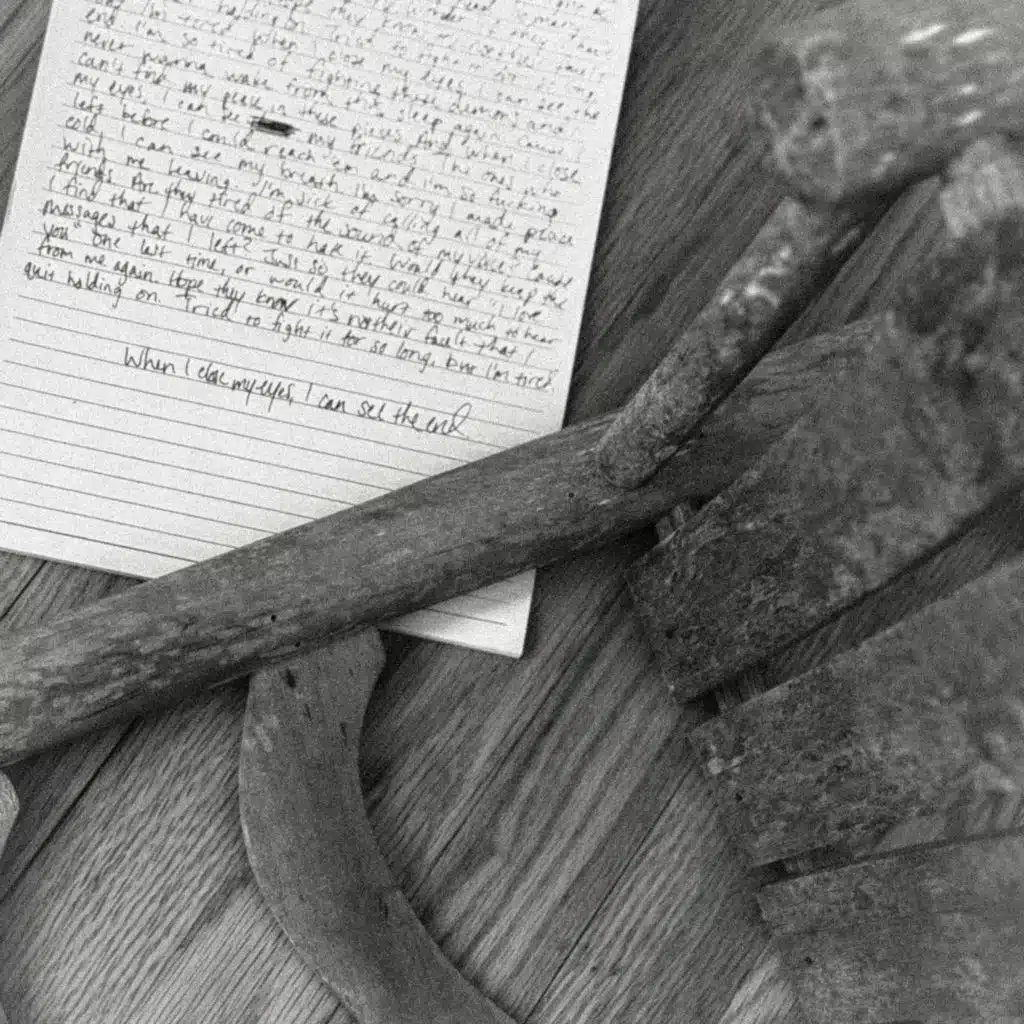 holding on
when I close my eyes I can see the
I'm so tired of fighting these demons and
never gonna wake from this sleep again. Cause I
can't find my place in these pieces. And when I close
my eyes, I can see my friends. The ones who
left before I could reach 'em and I'm so fucking
cold, I can see my breath. I'm sorry I made peace
with me leaving. I'm sick of calling all of my
friends. Are they tired of the sound of my voice? Cause
I find that I have come to hate it. Would they keep the
messages that I left? Just so they could hear "I love
you" one last time, or would it hurt too much to hear
from me again. Hope they know it's not their fault that I
quit holding on. Tried to fight it for so long, but I'm tired
When I close my eyes, I can see the end